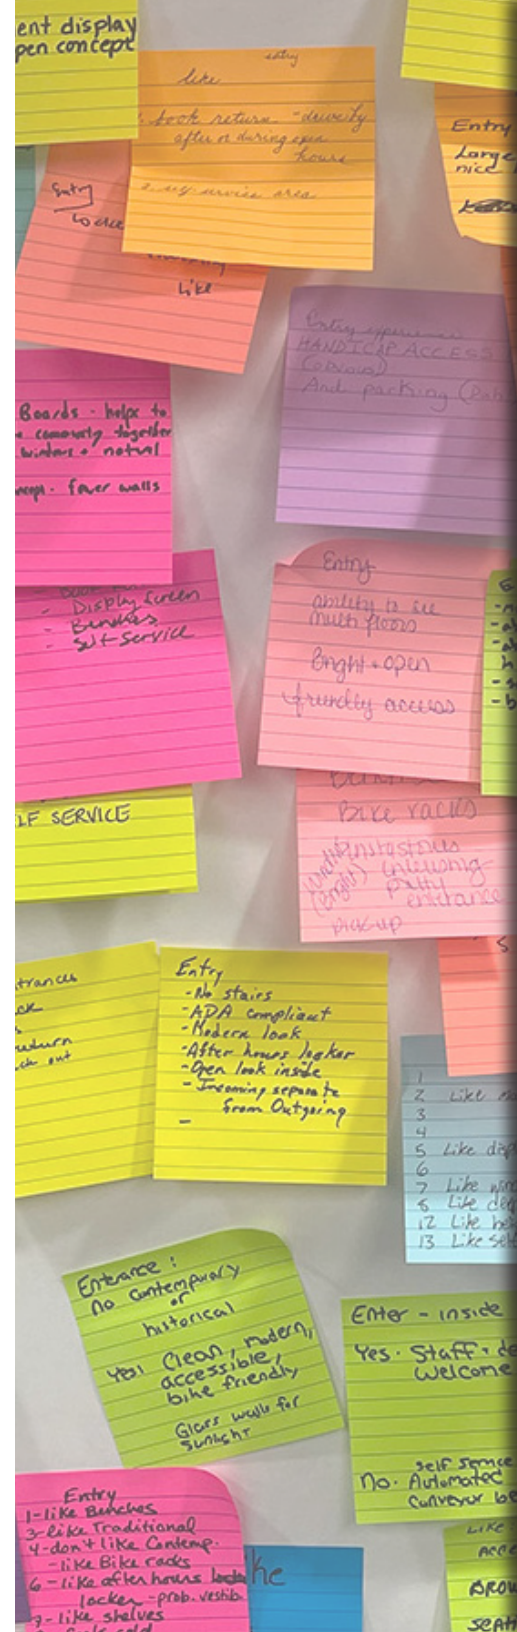 ent display
pen concept
entry
like
book return - directly
after or during open
hours
2. self-service area
Entry
Large
nice
Entry
Like
Entry experience
HANDICAP ACCESS
(obvious)
And parking
Boards - helps to
community together
windows + natural
fewer walls
- Display Screen
- Benches
- Self-Service
Entry
ability to see
multi floors
Bright + open
friendly access
LF SERVICE
Bike racks
(Bright)
entrance
pick-up
trances
ck
return
ck out
Entry
- No stairs
- ADA compliant
- Modern look
- After hours locker
- Open look inside
- Incoming separate
from Outgoing
-
1
2 Like
3
4
5 Like disp
6
7 Like win
8 Like
12 Like
13 Like sel
Entrance :
no contemporary
or
historical
Yes! Clean, modern,
accessible,
bike friendly
Glass walls for
sunlight
Enter - inside
Yes. Staff + de
welcome
self service
No. Automated
Conveyor be
Entry
1-like Benches
3-like Traditional
4-don't like Contemp.
-like Bike racks
6-like after hours
locker - prob. vestib
7-like shelves
he
LIKE
ACCE
BROW
SEAT